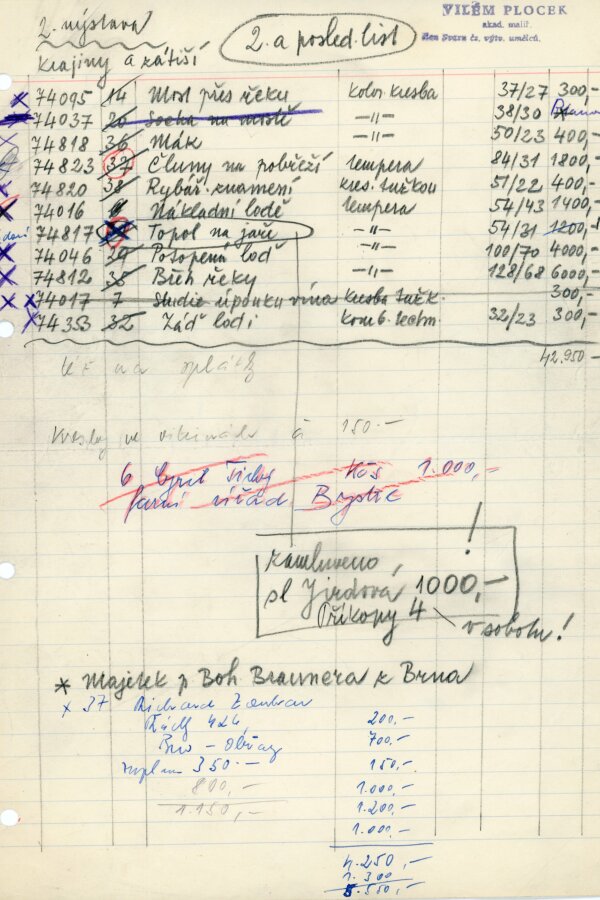 2. výstava
2. a posled. list
VILÉM PLOCEK
akad. malíř
člen Svazu čs. výtv. umělců.
krajiny a zátiší
74095 14 Most přes řeku kolor. kresba 37/27 300,-
74037 20 Socha na mostě -"- 38/30
74818 36 Mák -"- 50/23 400,-
74823 37 Čluny na pobřeží tempera 84/31 1800,-
74820 38 Rybář. znamení kres. tužkou 51/22 400,-
74016 Nákladní lodě tempera 54/43 1400,-
74817 Topol na jaře -"- 54/31 1200,-
74046 29 Potopená loď -"- 100/70 4000,-
74812 35 Břeh řeky -"- 128/68 6000,-
74017 7 Studie úponku vína kresba tužk. 300,-
74353 32 Záď lodi komb. techn. 32/23 300,-
42.950.-
na splátk
150.-
6 Cyril Kčs 1.000,-
farní
zamluveno
sl Jirdová 1000,-
Příkopy 4
v sobotu!
* Majetek p Boh. Braunera z Brna
x 37
424 200,-
700,-
350.- 150.-
800,- 1.000,-
1.150,- 1.200,-
1.000,-
4.250,-
1.300
5.550,-